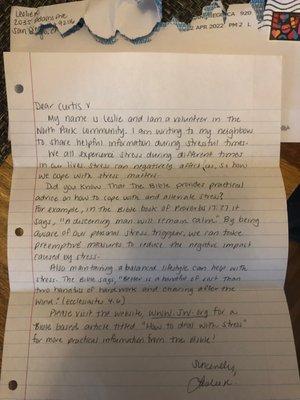 Leslie K
2035 Adams Ave
San Diego, CA 92116
920
22 APR 2022 PM 2 L
Dear Curtis V
My name is Leslie and I am a volunteer in the
North Park community. I am writing to my neighbors
to share helpful information during stressful times.
We all experience stress during different times
in our lives. Stress can negatively affect us, so how
we cope with stress matters.
Did you know that The Bible provides practical
advice on how to cope with and alleviate stress?
For example, in the Bible book of Proverbs 17:27 it
says, "A discerning man will remain calm." By being
aware of our personal stress triggers, we can take
preemptive measures to reduce the negative impact
caused by stress.
Also maintaining a balanced lifestyle can help with
stress. The Bible says, "Better is a handful of rest than
two handfuls of hard work and chasing after the
wind." (Ecclesiastes 4:6)
Please visit the website, www.JW.org for a
Bible based article titled "How to deal with stress"
for more practical information from the Bible!
Sincerely,
Leslie K.